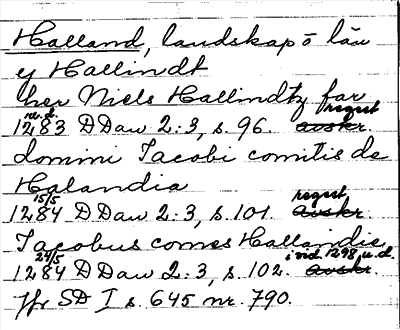 Halland, landskap o län
y Hallindt
her Niels Hallindtz far
u.d. regest
1283 DDan 2:3, s. 96. avskr.
domini Jacobi comitis de
Halandia
15/5 regest
1284 DDan 2:3, s. 101. avskr.
Jacobus comes Hallandie
24/5 i vid. 1298 u.d.
1284 DDan 2:3, s. 102. avskr.
Jfr SD I s. 645 nr. 790.